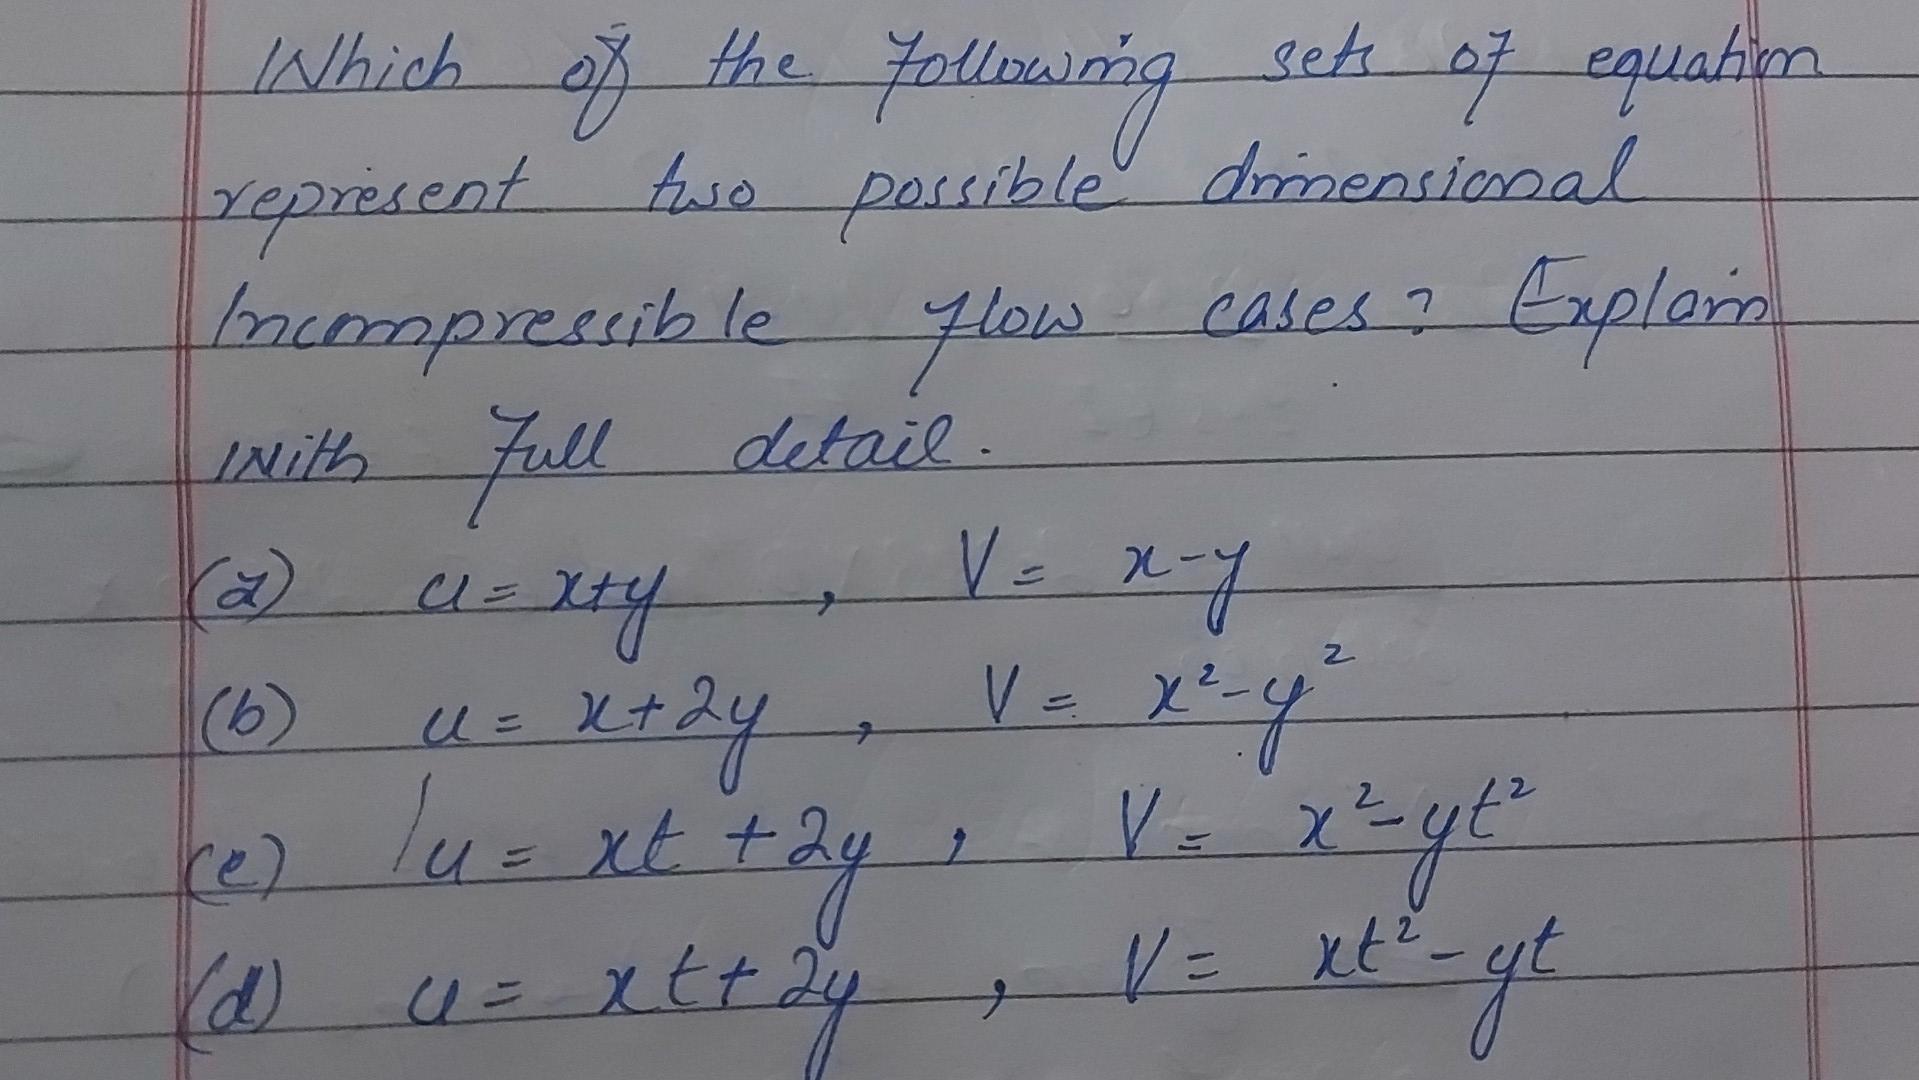 Which of the following sets of equation
represent two possible dimensional
Incompressible flow cases? Explain
with full detail.
(a) u = x+y , V = x-y
(b) u = x+2y , V = x²-y²
(c) u = xt +2y , V = x²-yt²
(d) u = xt+2y , V = xt²-yt